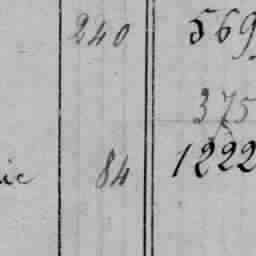 240 569
375
ic 84 1222